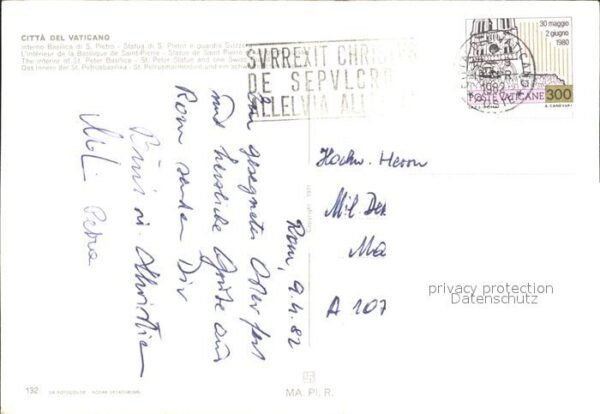 CITTÀ DEL VATICANO
Interno Basilica di S. Pietro - Statua di S. Pietro e guardia Svizzera
L'intérieur de la Basilique de Saint-Pierre - Statue de Saint Pierre
The interior of St. Peter Basilica - St. Peter Statue and one Swiss
Das Innere der St. Petrusbasilika - St. Petrusstatue und ein
SVRREXIT CHRISTVS
DE SEPVLCRO
ALLELVIA ALL
30 maggio
2 giugno
1980
1982
POSTE VATICANE 300
Rom, 9.4.82
Ein gesegnetes Osterfest
und herzliche Grüße aus
Rom senden Dir
Christian
Petra
Hochw. Herrn
Mil. Dek
Ma
A 107
privacy protection
Datenschutz
132
MA. PI. R.